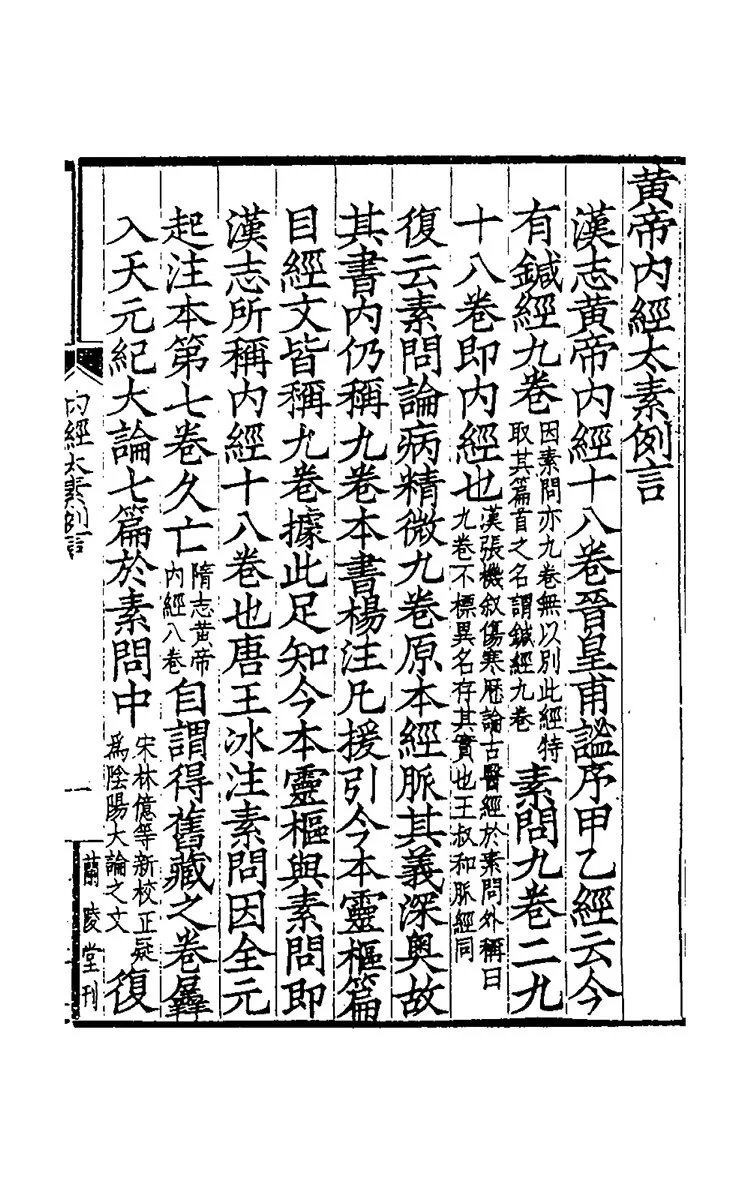 黄帝内經太素例言
漢志黄帝内經十八卷晉皇甫謐序甲乙經云今
有鍼經九卷因素問亦九卷無以別此經特取其篇首之名謂鍼經九卷素問九卷二九
十八卷即内經也漢張機叙傷寒歷論古醫經於素問外稱曰九卷不標異名存其實也王叔和脈經同
復云素問論病精微九卷原本經脈其義深奥故
其書内仍稱九卷本書楊注凡援引今本靈樞篇
目經文皆稱九卷據此足知今本靈樞與素問即
漢志所稱内經十八卷也唐王冰注素問因全元
起注本第七卷久亡隋志黄帝内經八卷自謂得舊藏之卷羼
入天元紀大論七篇於素問中宋林億等新校正疑爲陰陽大論之文復
内經太素例言
一
蘭陵堂刊